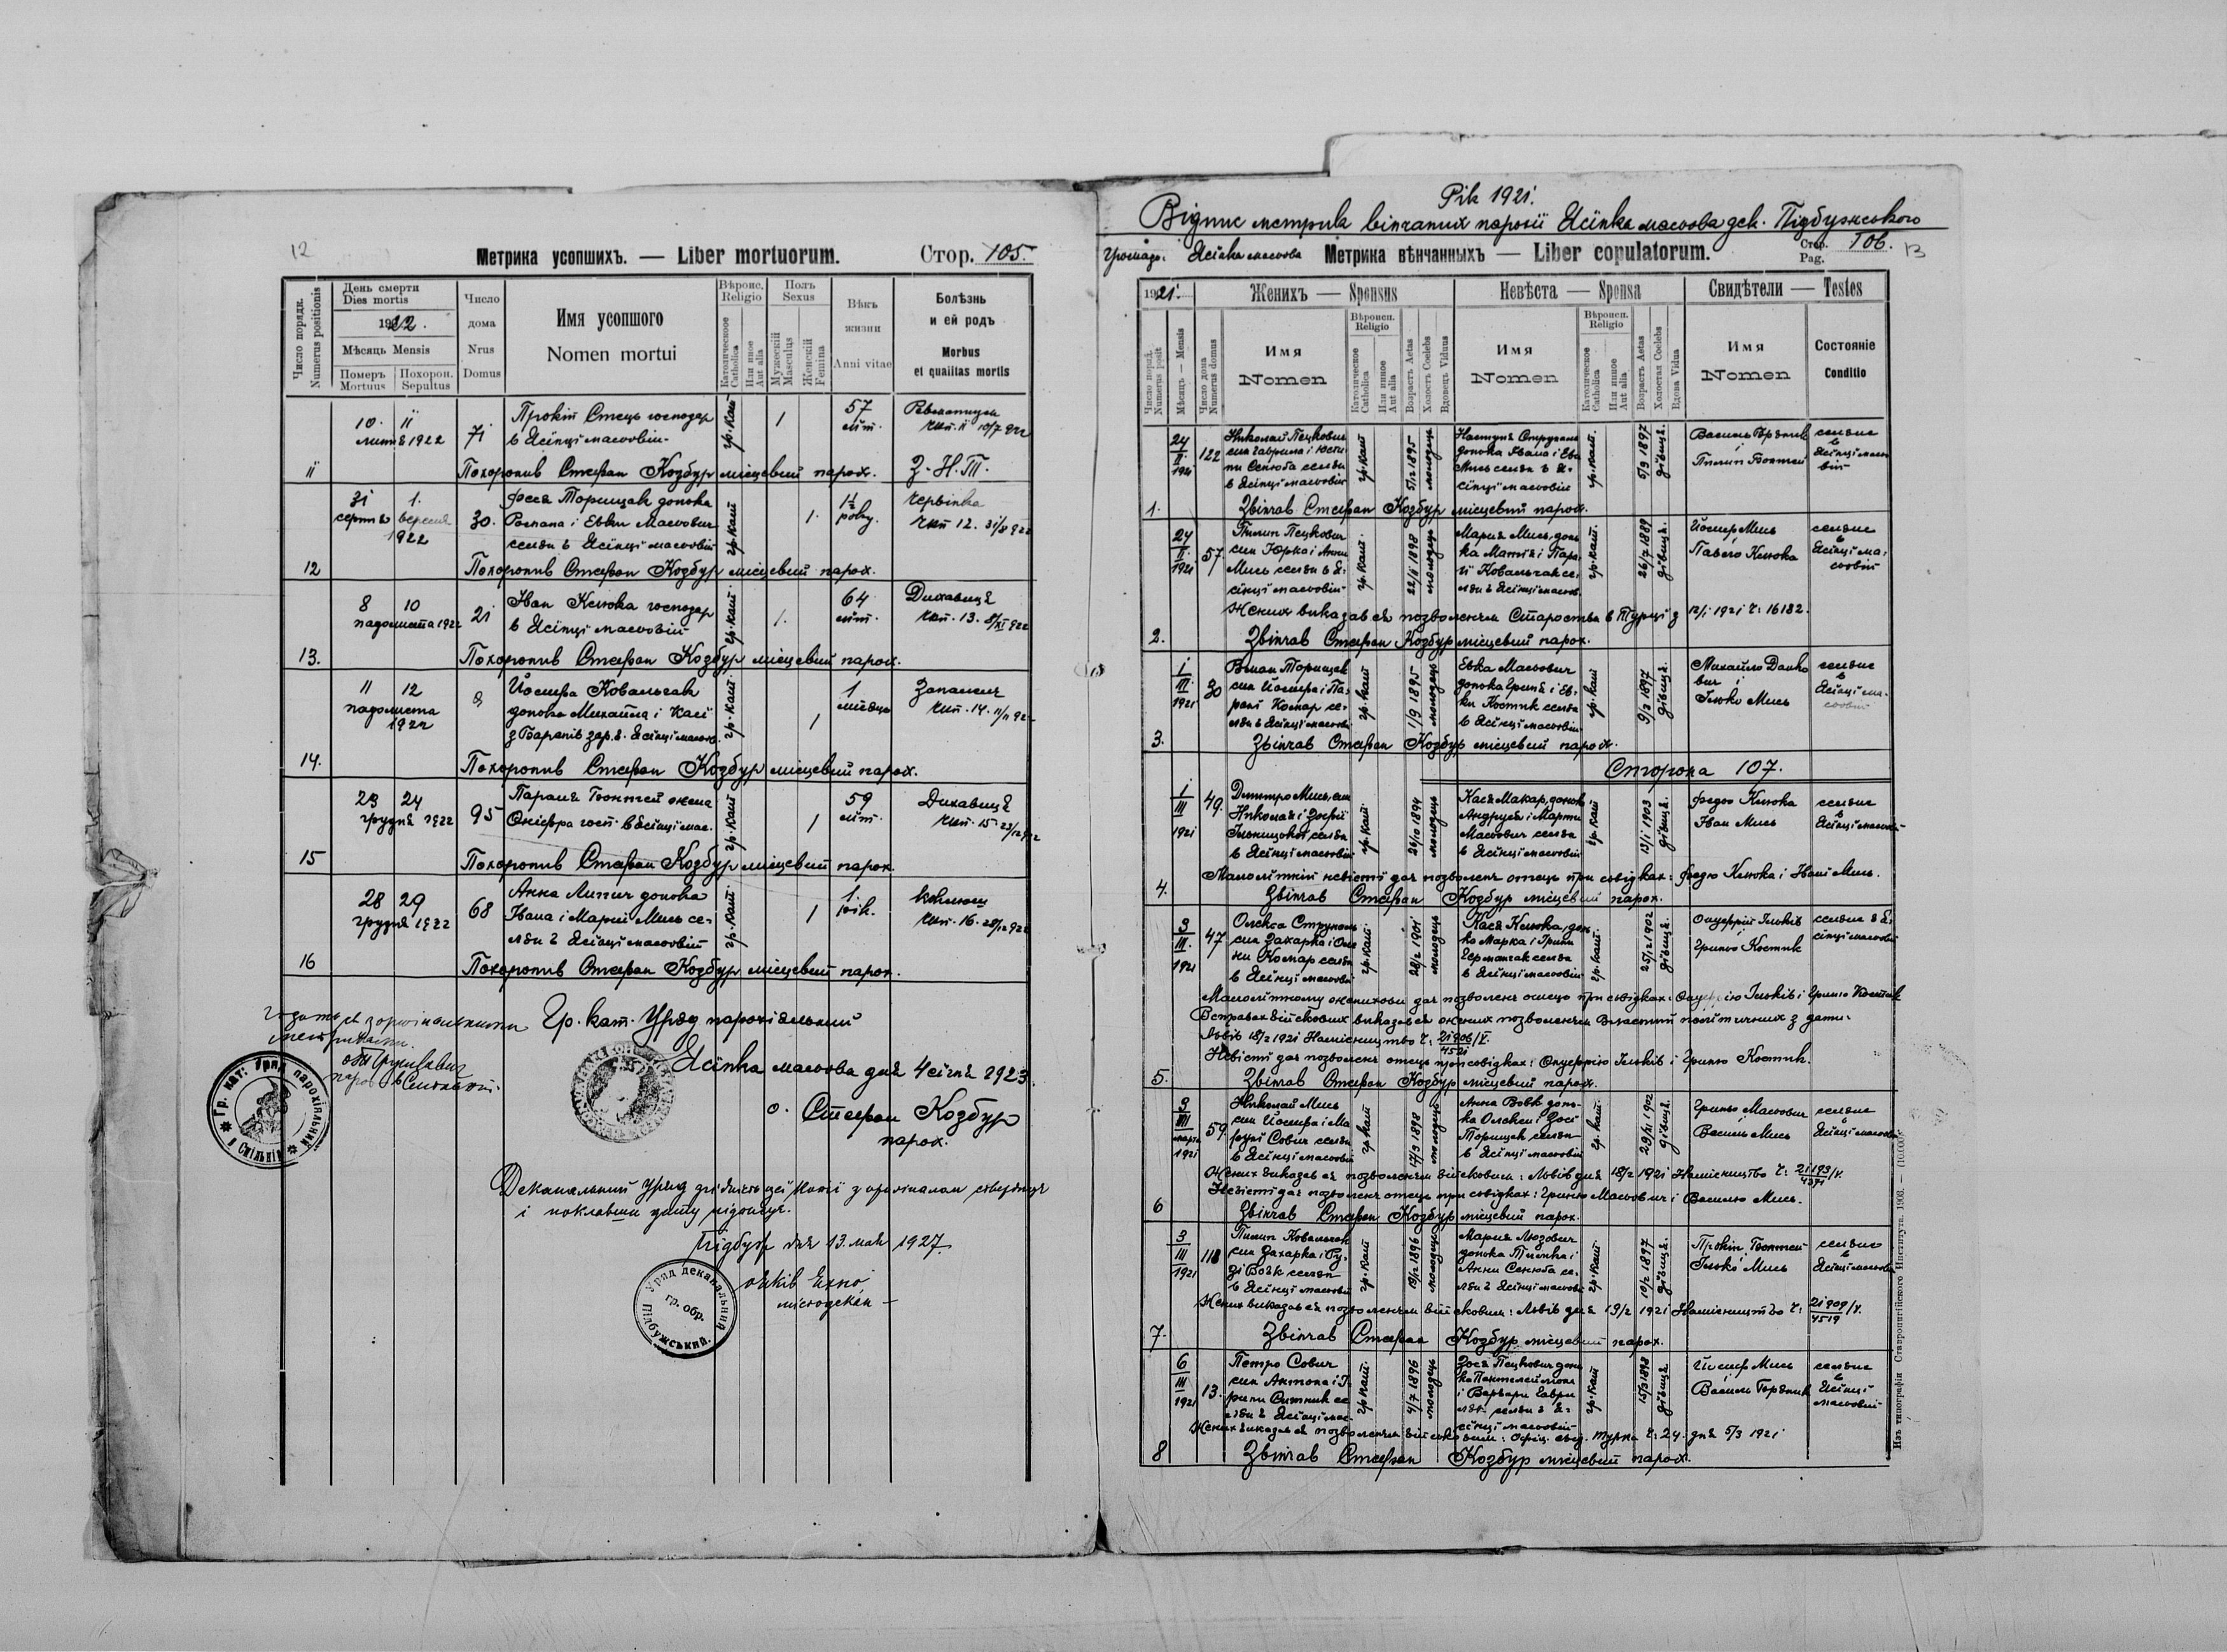 12
Метрика усопшихъ. — Liber mortuorum.
Стор. 105.
Число порядк.
Numerus positionis
День смерти
Dies mortis
1922.
Мѣсяць Mensis
Померъ
Mortuus
Похорон.
Sepultus
Число
дома
Nrus
Domus
Имя усопшого
Nomen mortui
Вѣроис.
Religio
Католическое
Catholica
Или иное
Aut alia
Полъ
Sexus
Мужескій
Masculus
Женскій
Femina
Вѣкъ
жизни
Anni vitae
Болѣзнь
и ей родъ
Morbus
et qualitas mortis
10. 11
1922
71
Прокіп Стець господар
в Ясінці масьовій
гр. кат
1
57
літ.
11
Похоронив Стефан Козбур місцевий парох.
З. Н. Т.
31 1.
серпня вересня
1922
30.
Феся Торищак донька
Романа і Евки Масьович
селян в Ясінці масьовій
гр. кат
1.
1½
року.
червінка
12
Похоронив Стефан Козбур місцевий парох.
8 10
падолиста 1922
21
Іван Кльока господар
в Ясінці масьовій
гр. кат
1.
64
літ.
Духавиця
13.
Похоронив Стефан Козбур місцевий парох.
11 12
падолиста
1922
Йосифа Ковальчак
донька Михайла і Касі
гр. кат.
1
1
місяць
Запаленє
14.
Похоронив Стефан Козбур місцевий парох.
23 24
грудня 1922
95
Параня Бонтей жена
Онісфра госп. в Ясінці мас.
гр. кат
1
59
літ.
Духавиця
15
Похоронив Стефан Козбур місцевий парох
28 29
грудня 1922
68
Анна Липич донька
Івана і Марії Мись се-
лян в Ясінці масьовій
гр. кат
1
1
рік.
коклюш
16
Похоронив Стефан Козбур місцевий парох.
Гр. кат. Уряд парохіяльний
Ясінка масьова дня 4 січня 1923.
о. Стефан Козбур
парох.
Гр. кат. Уряд парохіяльний
Деканальний Уряд
Підбуж дня 13. мая 1927.
містодекан
Уряд деканальний
гр. обр.
Підбужський.
Рік 1921.
Відпис метрик вінчаних парохії Ясінка масьова дек. Підбужського
Громада: Ясінка масьова Метрика вѣнчанныхъ — Liber copulatorum.
Стор.
Pag.
106.
13
1921.
Женихъ — Sponsus
Невѣста — Sponsa
Свидѣтели — Testes
Число поряд.
Numerus posit
Мѣсяць — Mensis
Число дома
Numerus domus
Имя
Nomen
Вѣроисп.
Religio
Католическое
Catholica
Или инное
Aut alia
Возрастъ Aetas
Холостъ Coelebs
Вдовець Viduus
Имя
Nomen
Вѣроисп.
Religio
Католическое
Catholica
Или инное
Aut alia
Возрастъ Aetas
Холостая Coelebs
Вдова Vidua
Имя
Nomen
Состояніе
Conditio
24
II
1921
122
Николай Пецкович
син Гаврила і Юсти-
ни Сенюба селян
в Ясінці масьовій
гр. кат
5/12 1895
молодець
Настуня Струпаль
донька Івана і Еви
Мись селян в Я-
сінці масьовій
гр. кат.
5/3 1897
дівиця.
і
Пилип Бонтей
селяне
в
Ясінці масьо
вій
1.
Звінчав Стефан Козбур місцевий парох.
24
II
1921
57
Пилип Пецкович
син Юрка і Анни
Мись селян в Я-
сінці масьовій
гр. кат.
молодець
Мария Мись, донь
ка Матія і Пара-
нї Ковальчак се-
лян в Ясінці масьов.
гр. кат.
26/7 1889
дівиця.
Йосиф Мись
Павло Кльока
селяне
в
Ясінці ма-
сьовій
Жених виказався позволенєм Староства в Турці з 12/1 1921 ч: 16182.
2.
Звінчав Стефан Козбур місцевий парох.
1
III
1921
30
Роман Торищак
син Йосифа і Па-
рані Комар се-
лян в Ясінці масьовій
гр. кат
1/9 1895
молодець
Евка Масьович
донька Гриня і Ев-
ки Костик селян
в Ясінці масьовій
гр. кат
9/2 1897
дівиця.
Михайло Данко
вич і
Ілько Мись
селяне
в
Ясінці ма-
сьовій
3.
Звінчав Стефан Козбур місцевий парох.
Сторона 107.
1
III
1921
49.
Дмитро Мись, син
Николая і Зофії
Ільницької, селян
в Ясінці масьовій
гр. кат.
26/10 1894
молодець
Кася Макар, донька
Андруся і Марти
Масьович селян
в Ясінці масьовій
гр. кат
13/1 1903
дівиця.
Федьо Кльока
Іван Мись
селяне
в
Ясінці масьовій
Малолітній невісті дав позволенє отець при сьвідках: Федю Кльока і Івані Мись.
4.
Звінчав Стефан Козбур місцевий парох.
3
III.
1921
47
Олекса Струпаль
син Захарка і Оле
ни Комар селян
в Ясінці масьовій
гр. кат.
28/2 1901
молодець
Кася Кльока, донь
ка Марка і Гринї
Германчак селян
в Ясінці масьовій
гр. кат.
25/12 1902
дівиця.
Онуфрій Ільків
Гринько Костик
селяне в Я-
сінці масьовій
Малолітному женихови дав позволенє отець при сьвідках: Онуфрію Ільків і Гриню Костик
В справах військових виказався жених позволенєм Властий політичних з дати:
Львів 18/2 1921 Намісництво ч. 21906/4521/V.
Невісті дав позволенє отець при сьвідках: Онуфрію Ільків і Гриньо Костик.
5.
Звінчав Стефан Козбур місцевий парох.
3
III
марта
1921
59
Николай Мись
син Йосифа і Ма
рунї Сович селян
в Ясінці масьовій
гр кат
17/3 1898
молодець
Анна Вовк донь-
ка Олекси і Зосї
Торищак селян
в Ясінці масьовій
гр. кат.
29/XI 1902
дівиця.
Гриньо Масьович
Василь Мись
селяне
в
Ясінці масьовій
Жених виказався позволенєм військовим: Львів дня 18/2 1921 Намісництво ч: 21193/4371/V.
Невісті дав позволенє отець при сьвідках: Гриньо Масьович і Василю Мись.
6
Звінчав Стефан Козбур місцевий парох.
3
III
1921
118
Пилип Ковальчак
син Захарка і Ру-
зі Вовк селян
в Ясінці масьовій
гр. кат
19/2 1896
молодець
Мария Лозович
донька Тимка і
Анни Сенюба се-
лян в Ясінці масьовій
гр. кат
10/2 1897
дівиця.
Прокіп Бонтей
Ілько Мись
селяне
в
Ясінці масьовій
Жених виказався позволенєм військовим: Львів дня 19/2 1921 Намісництво ч: 21909/4519/V.
7.
Звінчав Стефан Козбур місцевий парох.
6
III
1921
13.
Петро Сович
син Антона і І-
рини Ситник се
лян в Ясінці мас-
гр кат.
4/7 1896
молодець
Зося Пецкович донь
ка Пантелеймона
і Варвари Гаври
ляк селян в Я-
сінці масьовій
гр. кат
15/3 1898
дівиця.
Йосиф Мись
селяне
в
Ясінці
масьовій
Жених виказався позволенєм військовим: Турка ч: 24. дня 5/3 1921
8
Звінчав Стефан Козбур місцевий парох.
Изъ типографіи Ставропигійского Института. 1903. — (10.000).